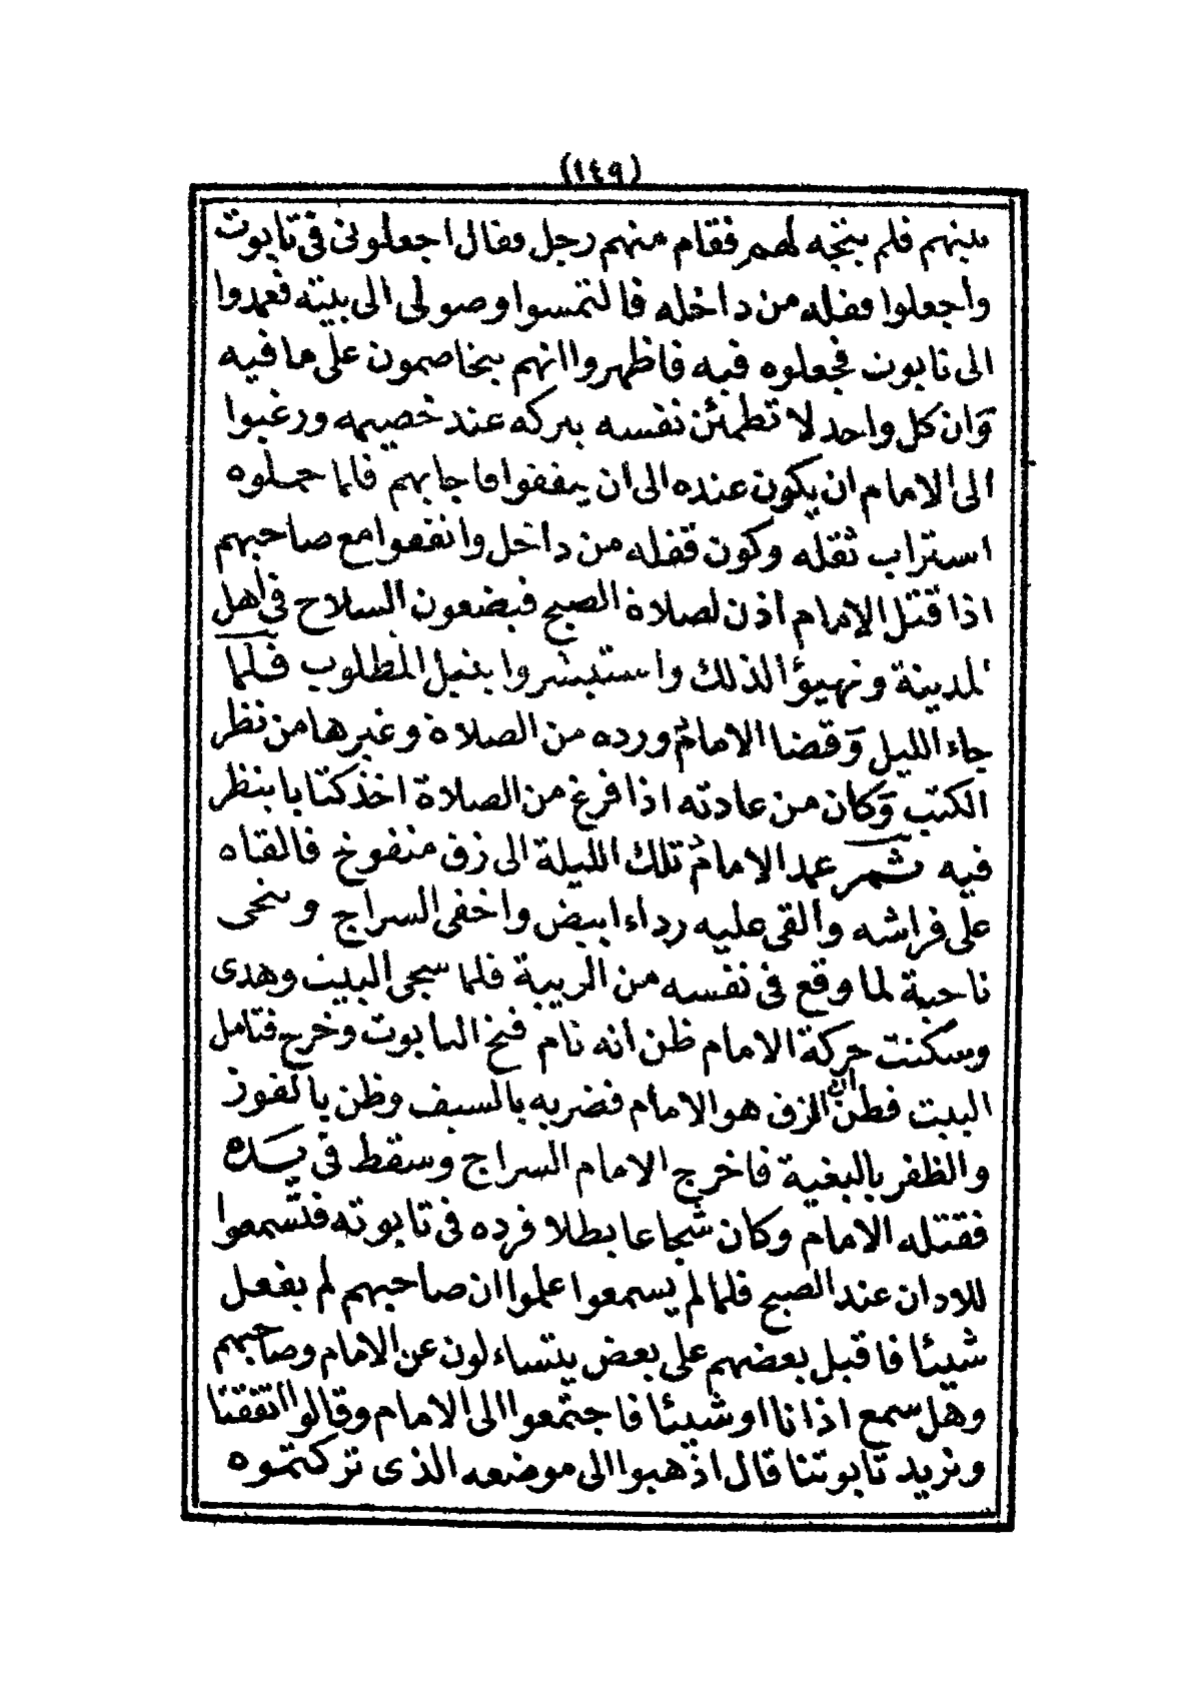 (١٤٩)
بينهم فلم يتجه لهم فقام منهم رجل وقال اجعلونى فى تابوت
واجعلوا قفله من داخله فالتمسوا وصولى الى بيته فعمدوا
الى تابوت فجعلوه فيه فاظهروا انهم يتخاصمون على ما فيه
وان كل واحد لا تطمئن نفسه بتركه عند خصيمه ورغبوا
الى الامام ان يكون عنده الى ان يتفقوا فاجابهم فلما حملوه
استراب ثقله وكون قفله من داخل واتفقوا مع صاحبهم
اذا قتل الامام أذن لصلاة الصبح فيضعون السلاح فى أهل
المدينة وتهيؤا لذلك واستبشروا بنيل المطلوب فلما
جاء الليل وقضا الامام ورده من الصلاة وغيرها من نظر
الكتب وكان من عادته اذا فرغ من الصلاة اخذ كتابا ينظر
فيه ثم عمد الامام تلك الليلة الى زق منفوخ فالقاه
على فراشه والقى عليه رداء ابيض واخفى السراج وتنحى
ناحية لما وقع فى نفسه من الريبة فلما سجى البيت وهدى
وسكنت حركة الامام ظن انه نام فتح التابوت وخرج فتامل
البيت فظن ان الزق هو الامام فضربه بالسيف وظن بالفوز
والظفر بالبغية فاخرج الامام السراج وسقط فى يده
فقتله الامام وكان شجاعا بطلا فرده فى تابوته فتسمعوا
للادان عند الصبح فلما لم يسمعوا علموا ان صاحبهم لم يفعل
شيئا فاقبل بعضهم على بعض يتساءلون عن الامام وصاحبهم
وهل سمع اذانا او شيئا فاجتمعوا الى الامام وقالوا اتفقنا
ونريد تابوتنا قال اذهبوا الى موضعه الذى تركتموه